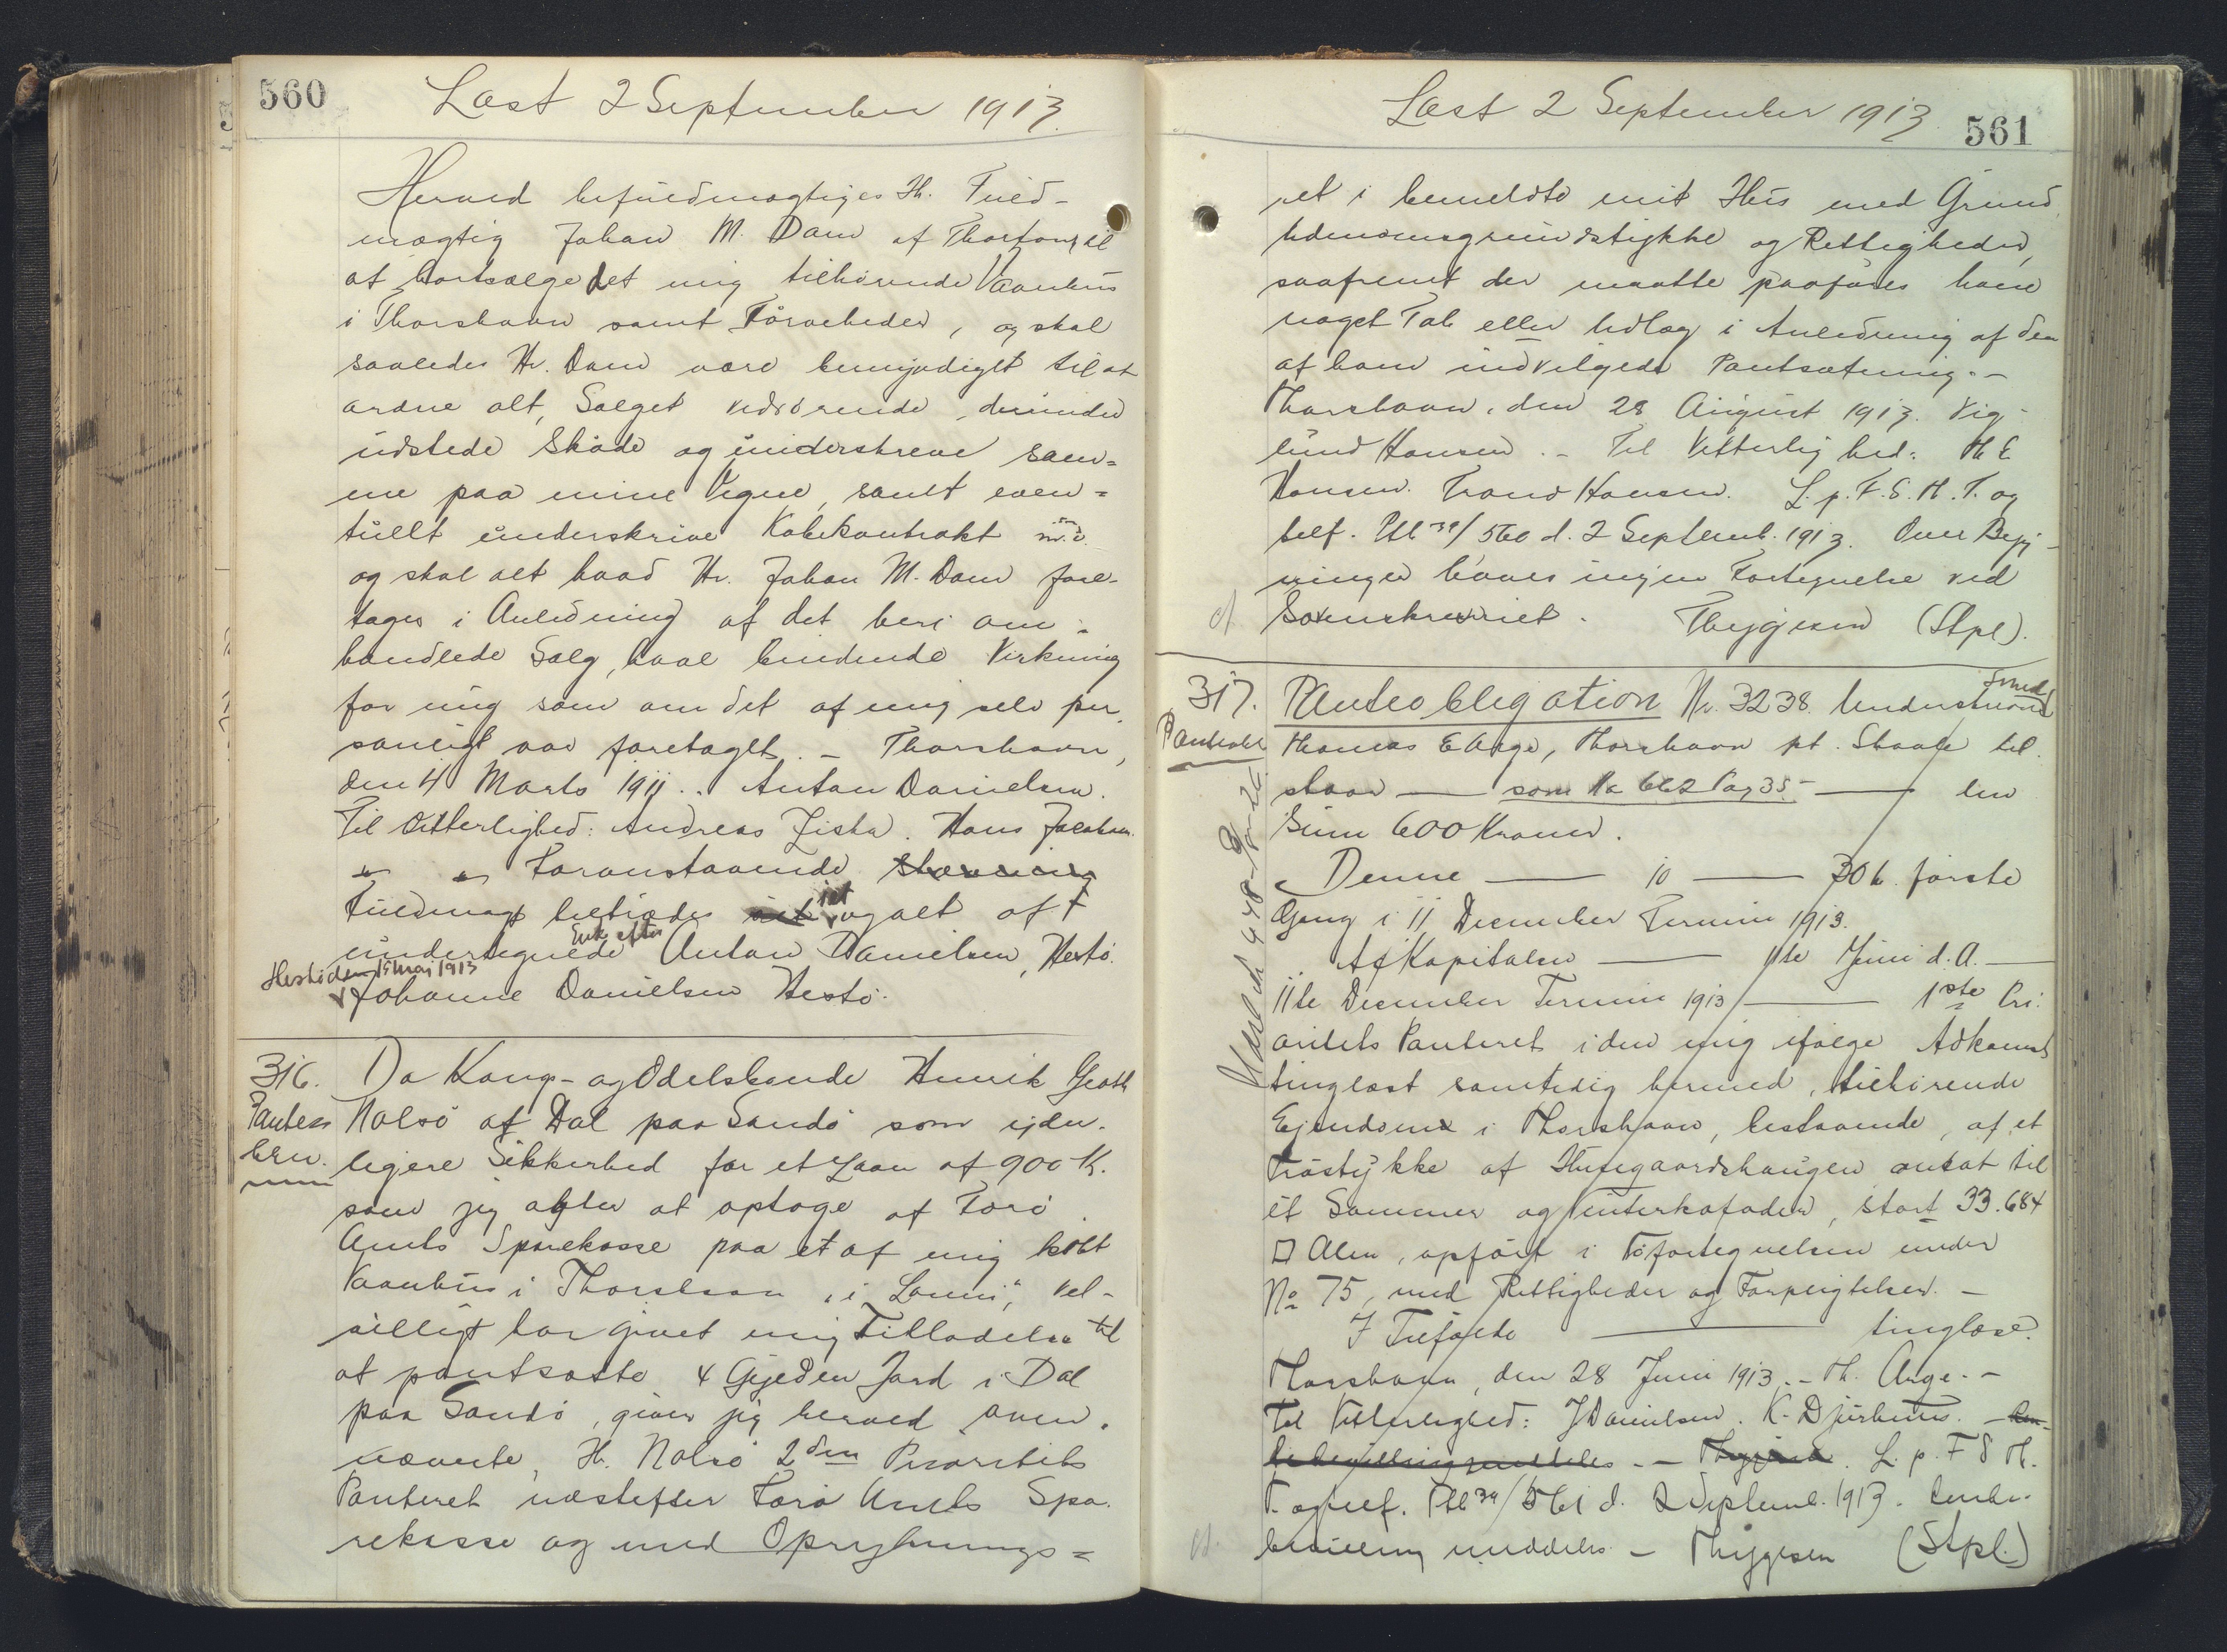 560
Læst 2 September 1913.
Herved befuldmægtiges Hr. Fuld-
mægtig Johan M. Dam af Thorshavn til
at bortsælge det mig tilhørende Vaanhus
i Thorshavn samt Tørveheder, og skal
saaledes Hr. Dam være bemyndiget til at
ordne alt, Salget vedrørende, derunder
udstede Skøde og underskreve sam=
me paa mine Vegne, samt even=
tuellt underskrive Købekontrakt m.v.
og skal alt hvad Hr. Johan M. Dam fore-
tages i Anledning af det heri om=
handlede Salg, have bindende Virkning
for mig som om det af mig selv per
sonligt var foretaget. - Thorshavn,
den 4 Marts 1911.. Anton Danielsen.
Til Vitterlighed: Andreas Ziska. Hans Jacobsen
Foranstaaende
Fuldmagt tiltrædes i et og alt af
undertegnede Enke efter Anton Danielsen, Hestø.
Hestø den 15 Maj 1913
Johanne Danielsen Hestø.
316.
Pantets
brev.
Da Kongs- og Odelsbonde Henrik Groth
Nolsø af Dal paa Sandø som yder-
ligere Sikkerhed for et Laan af 900 K.
som jeg agter at optage af Færø
Amts Sparekasse paa et af mig købt
Vaanhus i Thorshavn "i Lonin", vel-
villigt har givet mig Tilladelse til
at pantsætte 4 Gyden Jord i Dal
paa Sandø, giver jeg herved oven-
nævnte, Hr. Nolsø 2den Prioritets
Panteret næstefter Færø Amts Spa-
rekasse og med Opryknings=
Læst 2 September 1913
561
ret i bemeldte mit Hus med Grund
Udenomsgrundstykke og Rettigheder,
saafremt der maatte paaføres ham
noget Tab eller Udlæg i Anledning af den
af ham indvilgede Pantsætning. -
Thorshavn, den 28 August 1913. Vig-
lund Hansen. - Til Vitterlighed: H E
Hansen. Trond Hansen. L. p. F. S. H. T. og
telf. Ptl 34/560 d. 2 Septemb. 1913. Over Byg
ninger haves ingen Fortegnelse ved
Sorenskriveriet. Thygesen (Stpl).
317.
Panteobligation Nr. 3238. Undertegnede Smed
Thomas E Arge, Thorshavn pt. Skaale til
staar — som No 662 Pag 35 — en
Sum 600 Kroner.
Denne — 10 — 30 k. første
Gang i 11 December Termin 1913.
Af Kapitalen — 11te Juni d. A. —
11te December Termin 1913 — 1ste Pri.
oritets Panteret i den mig ifølge Adkomst
tinglæst samtidig hermed, tilhørende
Ejendom i Thorshavn, bestaaende, af et
Trøstykke af Husegaardshaugen ansat til
et Sommer og Vinterkofoder, stort 33.684
□ Alen, opført i Trøfortegnelsen under
No 75, med Rettigheder og Forpligtelser. -
I Tilfælde — tinglæse.
Thorshavn, den 28 Juni 1913. - Th. Arge. -
Til Vitterlighed: J Danielsen. K. Djurhuus. -
L. p. F S H.
T. og telf. Ptl 34/561 d. 2 Septemb. 1913.
bevilling meddeles - Thygesen (Stpl.)